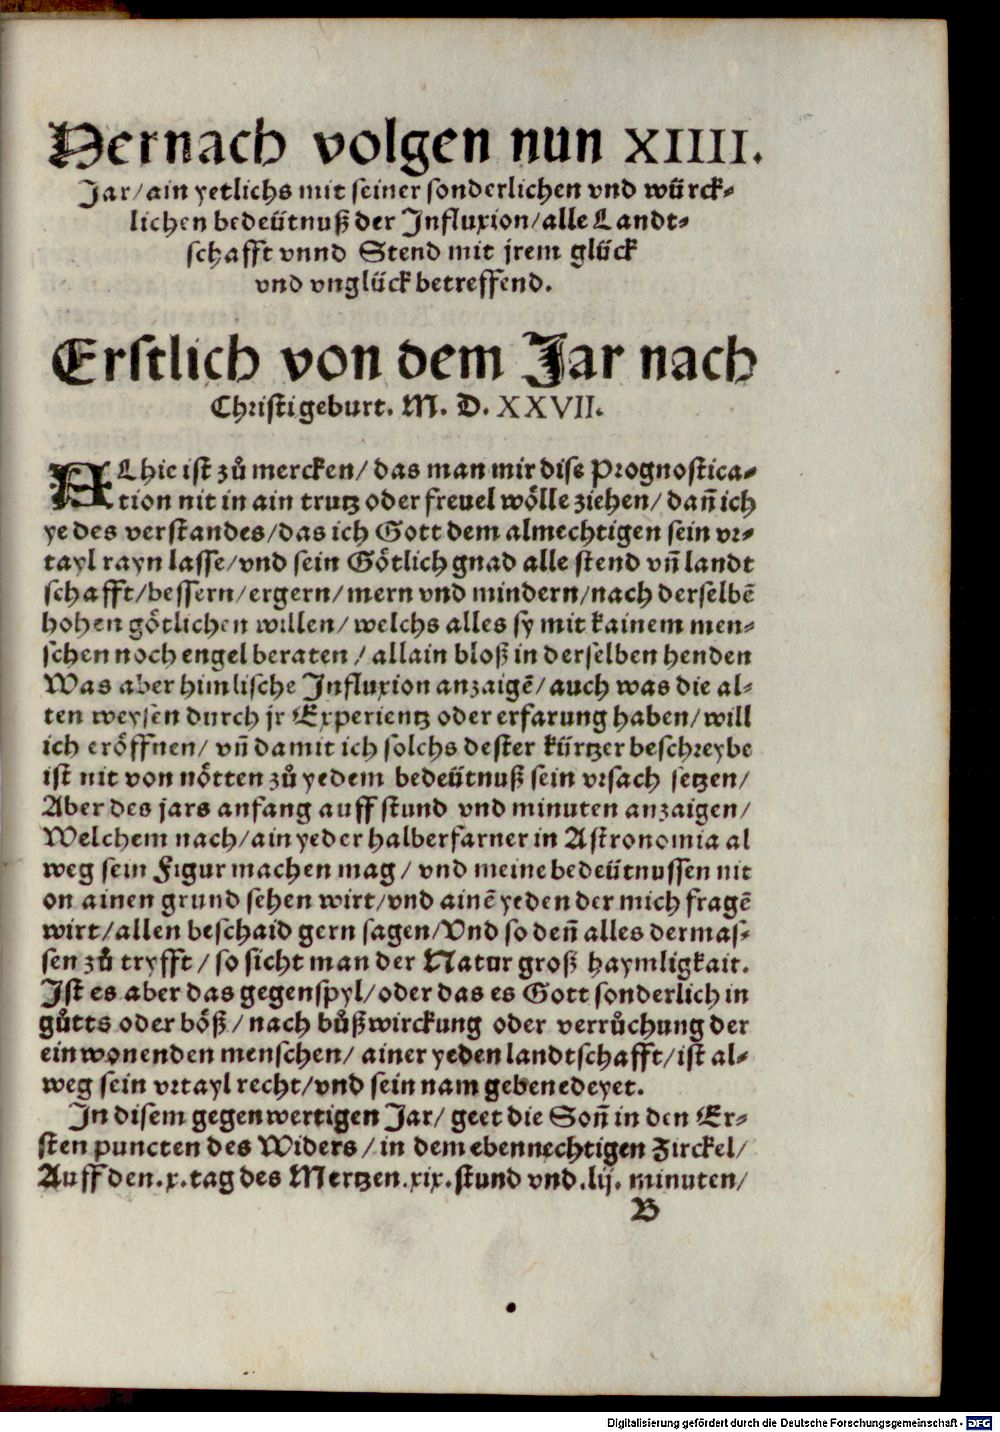 Hernach volgen nun XIIII.
Jar/ain yetlichs mit seiner sonderlichen vnd würck⸗
lichen bedeütnuß der Influxion/alle Landt⸗
schafft vnnd Stend mit jrem glück
vnd vnglück betreffend.
Erstlich von dem Jar nach
Christi geburt. M. D. XXVII.
ALhie ist zů mercken/das man mir dise Prognostica⸗
tion nit in ain trutz oder freuel wölle ziehen/dañ ich
ye des verstandes/das ich Gott dem almechtigen sein vr⸗
tayl rayn lasse/vnd sein Götlich gnad alle stend vñ landt
schafft/bessern/ergern/mern vnd mindern/nach derselbẽ
hohen götlichen willen/welchs alles sy mit kainem men⸗
schen noch engel beraten/allain bloß in derselben henden
Was aber himlische Influxion anzaigẽ/auch was die al⸗
ten weysen durch jr Experientz oder erfarung haben/will
ich eröffnen/vñ damit ich solchs dester kürtzer beschreybe
ist nit von nötten zů yedem bedeütnuß sein vrsach setzen/
Aber des jars anfang auff stund vnd minuten anzaigen/
Welchem nach/ain yeder halberfarner in Astronomia al
weg sein Figur machen mag/vnd meine bedeütnussen nit
on ainen grund sehen wirt/vnd ainẽ yeden der mich fragẽ
wirt/allen beschaid gern sagen/Vnd so deñ alles dermas⸗
sen zů tryfft/so sicht man der Natur groß haymligkait.
Ist es aber das gegenspyl/oder das es Gott sonderlich in
gůtts oder böß/nach bůßwirckung oder verrůchung der
einwonenden menschen/ainer yeden landtschafft/ist al⸗
weg sein vrtayl recht/vnd sein nam gebenedeyet.
In disem gegenwertigen Jar/geet die Soñ in den Er⸗
sten puncten des Widers/in dem ebennechtigen Zirckel/
Auff den.x.tag des Mertzen.xix.stund vnd.lij. minuten/
B
Digitalisierung gefördert durch die Deutsche Forschungsgemeinschaft - DFG